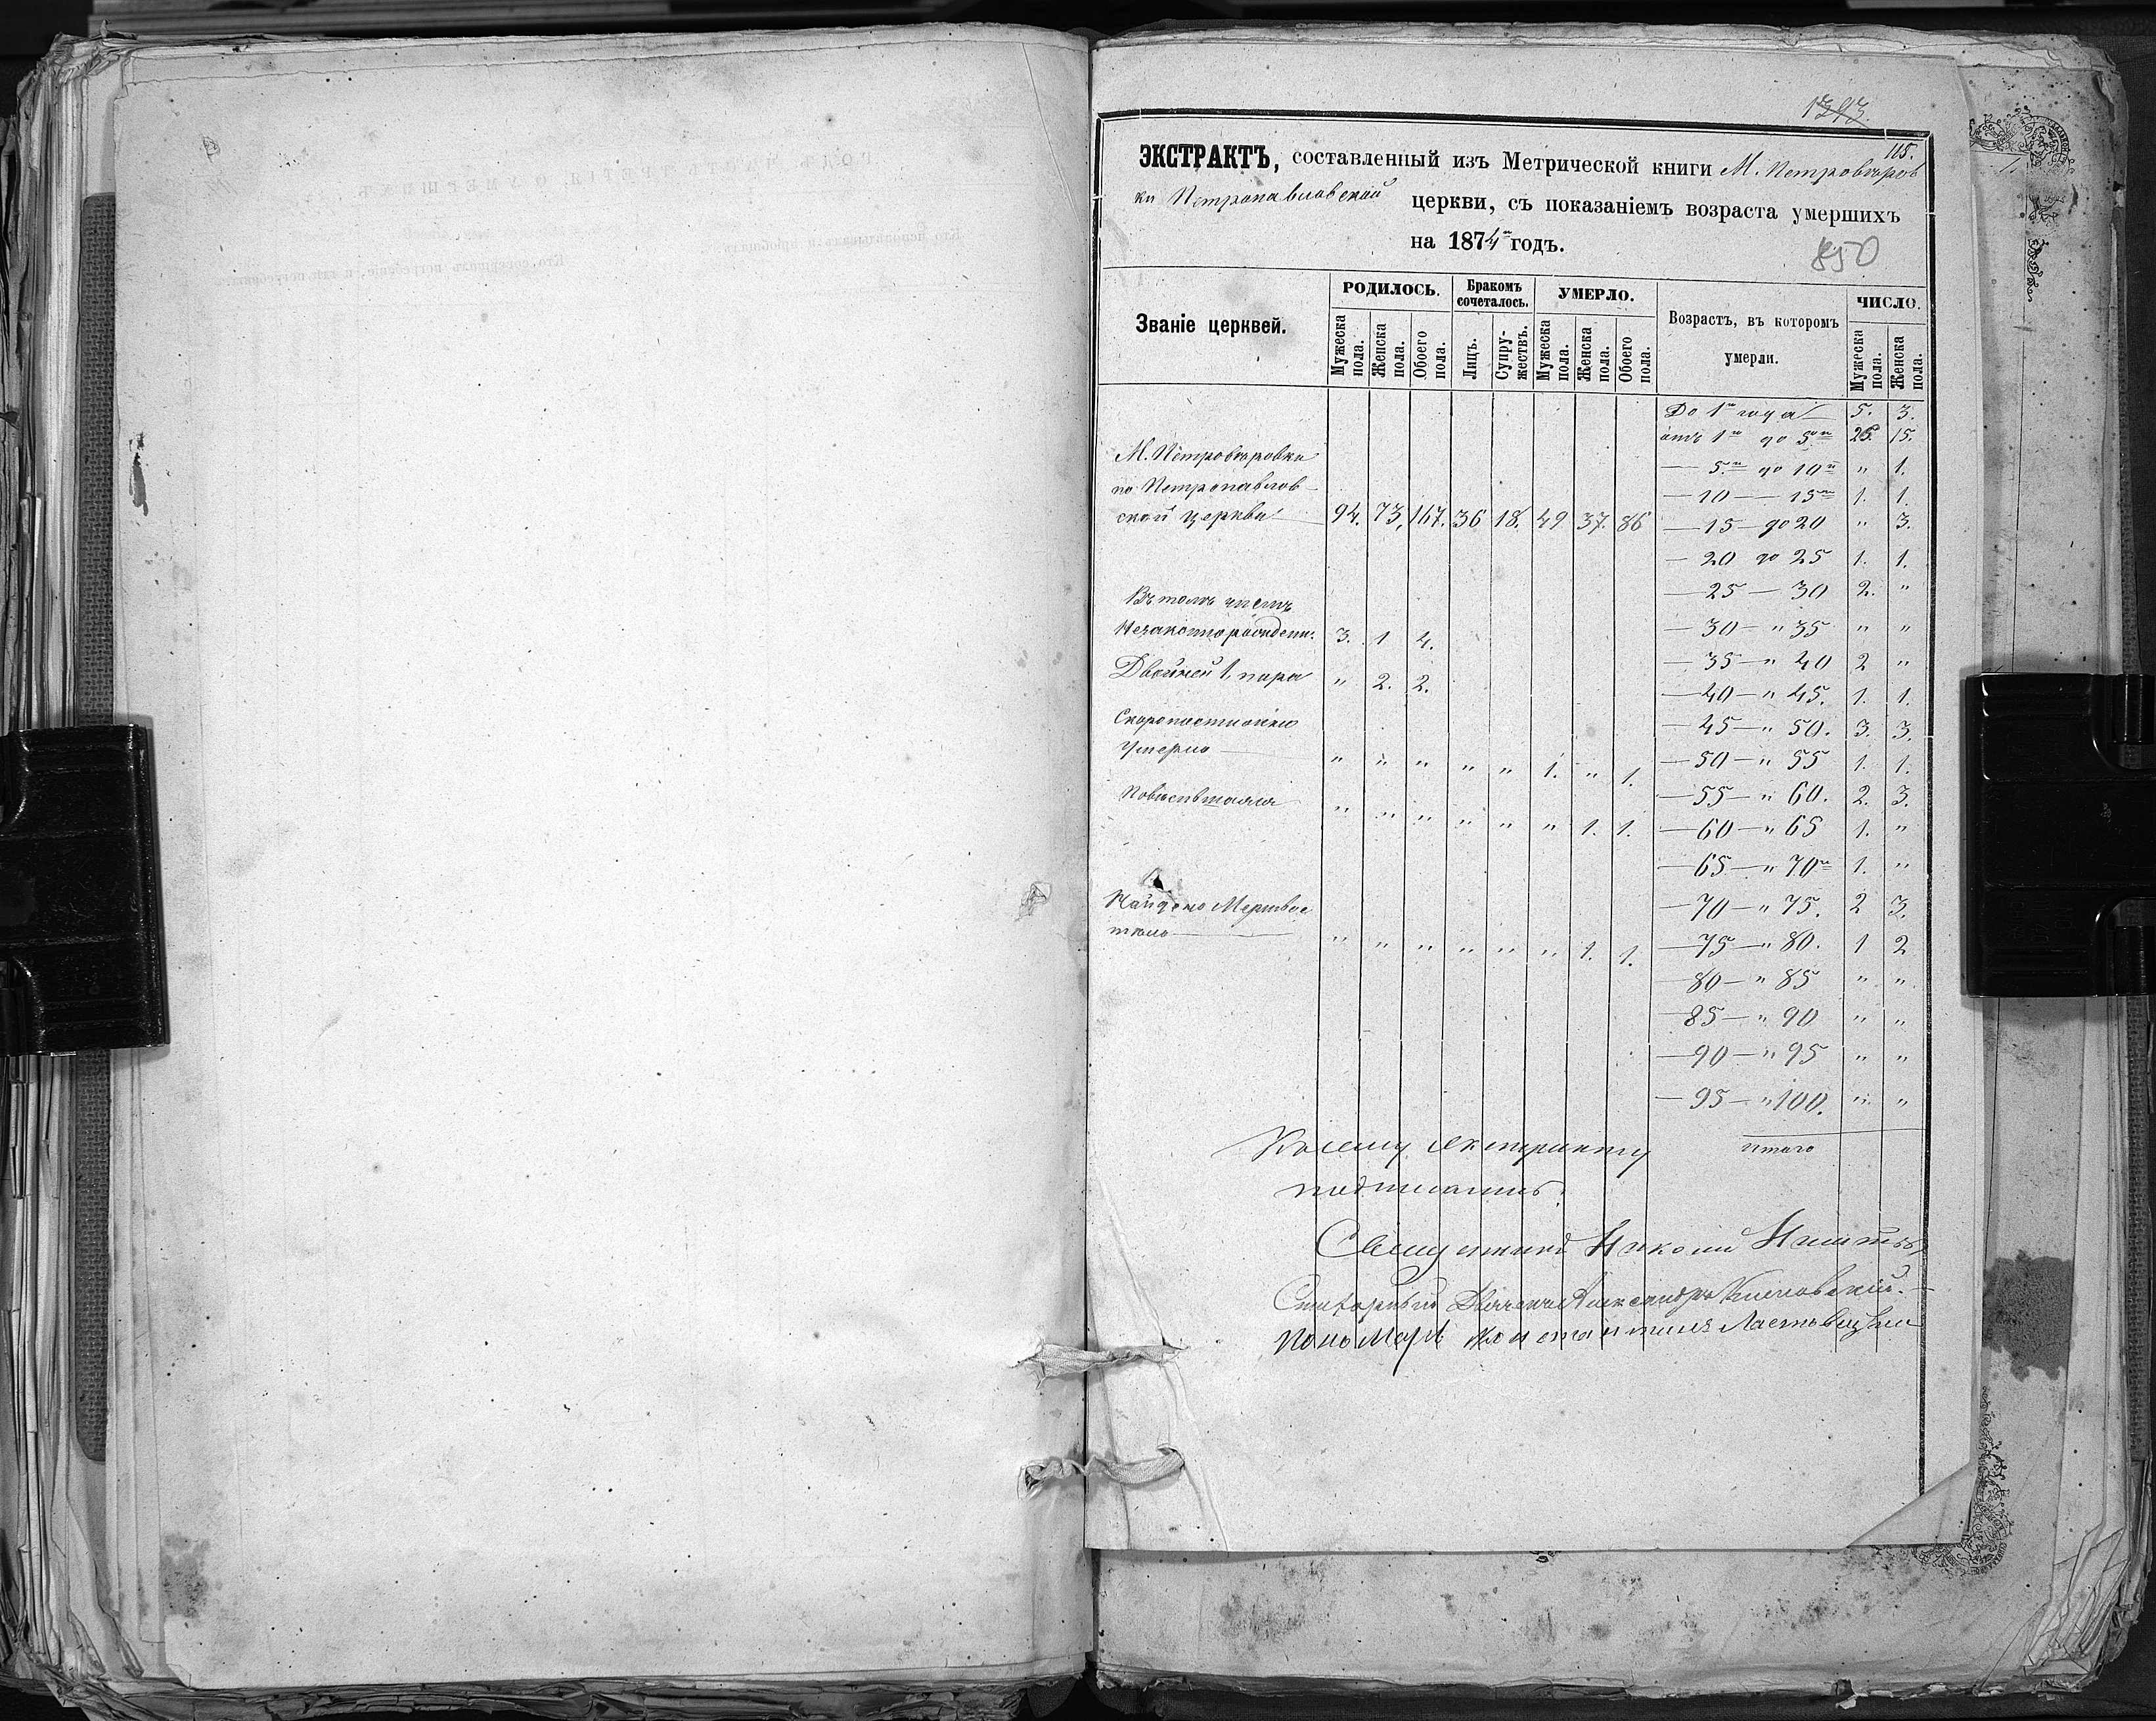 1393.
115.
ЭКСТРАКТЪ, составленный изъ Метрической книги М. Петровѣров
ки Петропавловской церкви, съ показаніемъ возраста умершихъ
на 1874й годъ.
850
Званіе церквей.
РОДИЛОСЬ.
Мужеска пола.
Женска пола.
Обоего пола.
Бракомъ сочеталось.
Лицъ.
Супру-жествъ.
УМЕРЛО.
Мужеска пола.
Женска пола.
Обоего пола.
Возрастъ, въ которомъ
умерли.
ЧИСЛО.
Мужеска пола.
Женска пола.
М. Петровѣровки
по Петропавлов-
ской церкви 94. 73, 167. 36 18. 49 37. 86
Въ томъ числѣ
Незаконнорожден. 3. 1 4.
Двойней 1. пара " 2. 2.
Скоропостижно
умерло " " " " " 1. " 1.
" " " " " " 1. 1.
Найдено Мертвое
тѣло " " " " " " 1. 1.
До 1го года 5. 3.
отъ 1го до 5ти 25. 15.
— 5ти до 10ти " 1.
— 10 — 15ти 1. 1.
— 15 — до 20 " 3.
— 20 до 25 1. 1.
— 25 — 30 2. "
— 30 — " 35 " "
— 35 — " 40 2 "
— 40 — " 45. 1. 1.
— 45 — " 50. 3. 3.
— 50 — " 55 1. 1.
— 55 — " 60. 2. 3.
— 60 — " 65 1. "
— 65 — " 70ти 1. "
— 70 — " 75. 2 3.
— 75 — " 80. 1 2
— 80 — " 85 " "
— 85 — " 90 " "
— 90 — " 95 " "
— 95 — " 100. " "
итого
Къ сему екстракту
подписались
Священникъ Николай
Дьячекъ Александръ
Пономарь Константинъ Ластовецкій